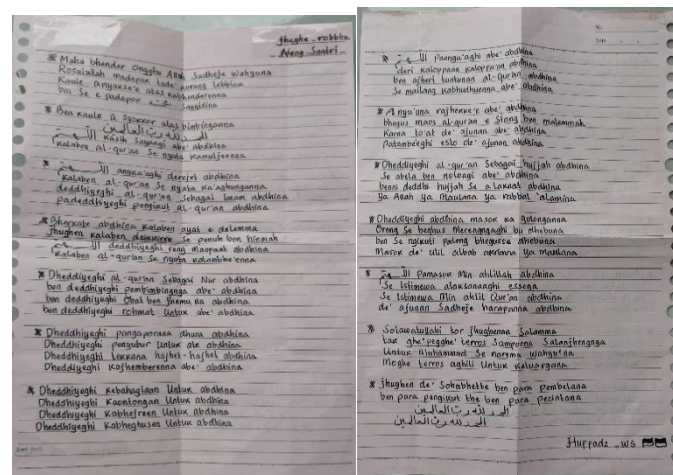 Jhughe robbix
Neng Santri
* Maha bhender Ongghu Allah Sadheje Wahyuna
Rosulullah madepak tade' korang lebbina
Kaule anyakse'e atas kabhenderenna
Des Se e padepak Sayyidina
* Ben kaule a syokkor atas bimbinganna
الحمد لله رب العالمين
اللهم kasih sayangi abe' abdhina
kalaben al-qur'an Se nyata kamuljeenna
* اللهم angka'aghi derejet abdhina
kalaben al-qur'an Se nyata ka'aghunganna
deddhiyeghi al-qur'an Sebagai Imam abdhina
padeddhiyeghi pengikut al-qur'an abdhina
* Bherkate abdhina kalaben ayat e delemma
Jhughen kalaben dzikkirre Se penuh ben hikmah
اللهم deddhiyeghi reng maqbul abdhina
kalaben al-qur'an Se nyata kalambe'enna
* Dheddhiyeghi al-qur'an Sebagai Nur abdhina
ben deddhiyeghi pembimbingnga abe' abdhina
ben deddhiyeghi Obat ben jhemu na abdhina
ben deddhiyeghi rohmat Untuk abe' abdhina
* Dheddhiyeghi pangaporana dhusa abdhina
Dheddhiyeghi penyubur Untuk ate abdhina
Dheddhiyeghi lekkana hajhet-hajhet abdhina
Dheddhiyeghi kajhemberenna abe' abdhina
* Dheddhiyeghi kebahagiaan Untuk abdhina
Dheddhiyeghi kaontongan Untuk abdhina
Dheddhiyeghi kabhefreen Untuk abdhina
Dheddhiyeghi kabheghusen Untuk abdhina
* اللهم Paenga'aghi abe' abdhina
deri kaloppaan kaloppa'an abdhina
ben ajheri tuntunan al-qur'an abdhina
Se mailang kabhudhuenna abe' abdhina
* Anyu'ona rajhekke'e abe' abdhina
bhegus maos al-quran e Siang ben malemmah
Karna to'at de' ajunan abe' abdhina
Patambe'eghi esto de' ajunan abdhina
* Dheddhiyeghi al-qur'an Sebagai hujjah abdhina
Se abela ben nolongi abe' abdhina
benni deddhi hujjah Se a lakaat abdhina
Ya Allah Ya Maulana Ya Rabbal 'alamina
* Dheddhiyeghi abdhina masok ka golonganna
Oreng Se beghus merengngaghi bu dhebuna
ben Se ngikuti paleng bhegusse dhebuna
Masok de' Ulil albab akrimna ya maulana
* اللهم Pamasok Min ahlillah abdhina
Se Istimewa alaksanaaghi essena
Se Istimewa Min ahlil Qur'an abdhina
de' ajunan Sadheje harapanna abdhina
* Solawatullahi tor jhughenna Salamma
tak ghe'pegghe' terros Samporna Salanjhengaga
Untuk Muhammad Se narema wahyu'na
Moghe terros aghili Untuk keluargana
* Jhughen de' Sohabhetbe ben para pembelana
ben para pengikut the ben para pecintana
الحمد لله رب العالمين
الحمد لله رب العالمين
Huffadz _ WS